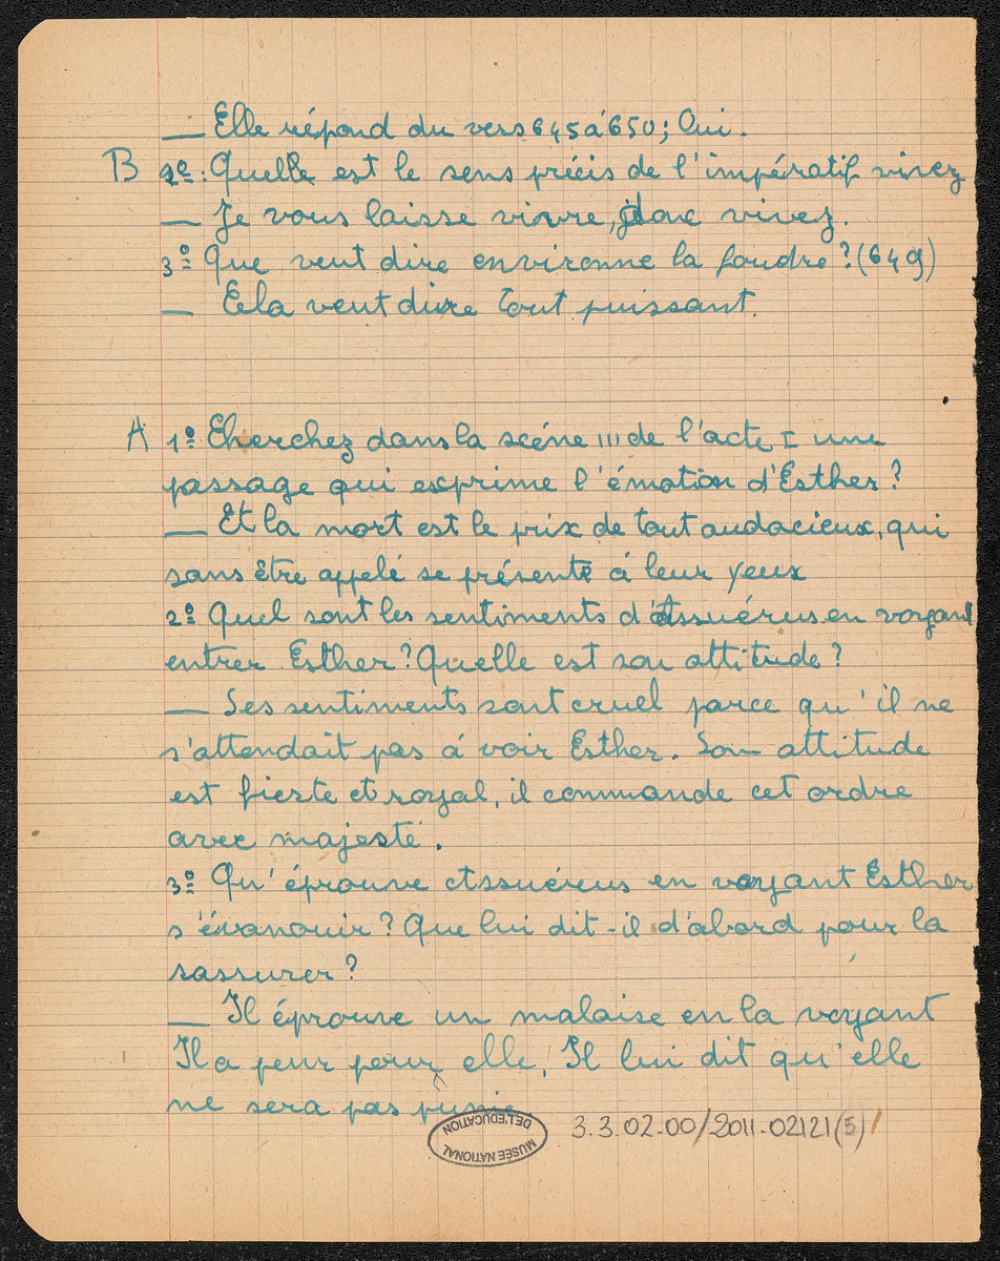 — Elle répond du vers 645 à 650; Oui.
B 2º: Quelle est le sens précis de l'impératif vivez
— Je vous laisse vivre, donc vivez.
3º Que veut dire environne la foudre? (649)
— Cela veut dire Tout puissant.
A 1º Cherchez dans la scéne III de l'acte I une
passage qui exprime l'émotion d'Esther?
— Et la mort est le prix de tout audacieux, qui
sans être appelé se présente à leur yeux
2º Quel sont les sentiments d'Assuérus en voyant
entrer Esther? Quelle est son attitude?
— Ses sentiments sont cruel parce qu'il ne
s'attendait pas á voir Esther. Son attitude
est fierte et royal, il commande cet ordre
avec majesté.
3º Qu'éprouve Assuérus en voyant Esther
s'évanouir? Que lui dit-il d'abord pour la
rassurer?
— Il éprouve un malaise en la voyant
Il a peur pour elle, Il lui dit qu'elle
ne sera pas punie.
MUSÉE NATIONAL DE L'ÉDUCATION
3.3.02.00/2011.02121(5)